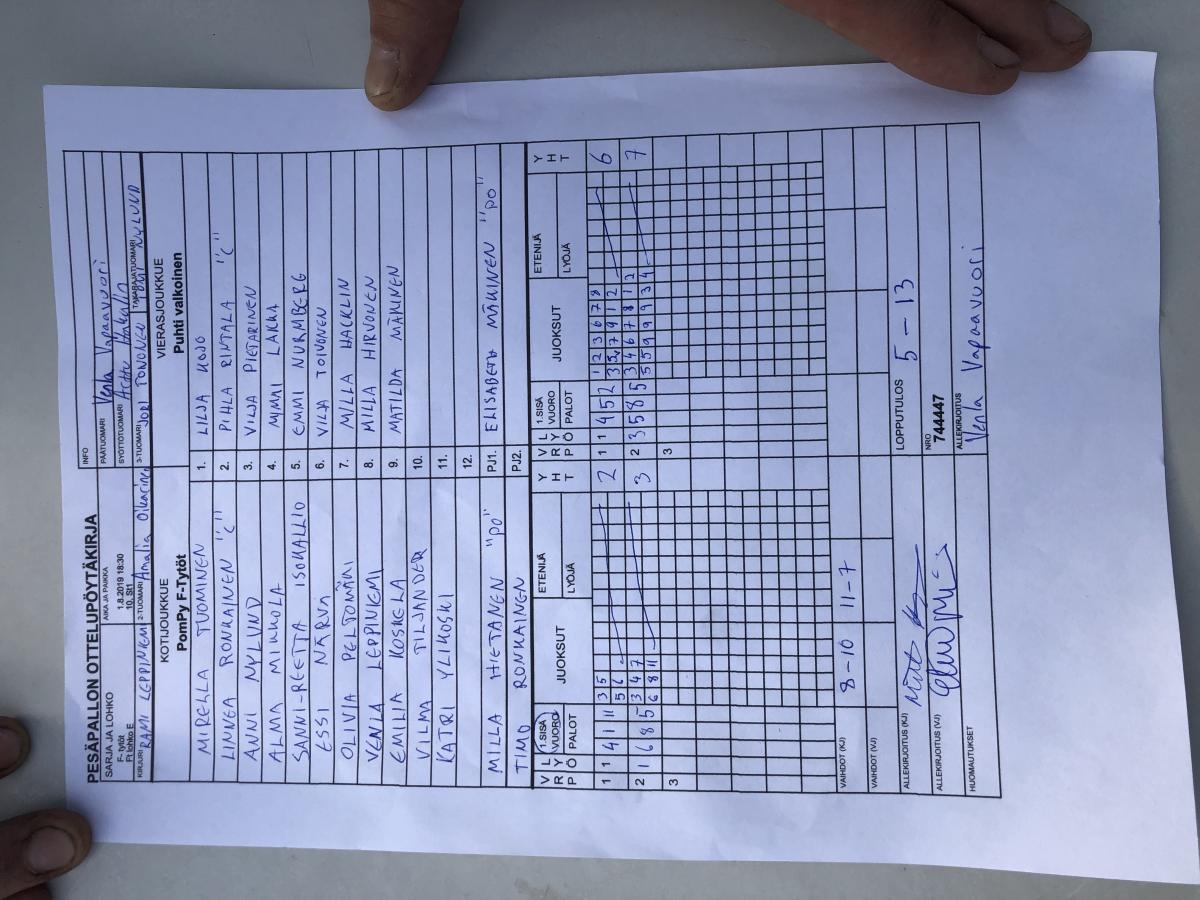 PESÄPALLON OTTELUPÖYTÄKIRJA
INFO
SARJA JA LOHKO
F- tytöt
Ft lohko E
AIKA JA PAIKKA
1.8.2019 18:30
10, St1
PÄÄTUOMARI Venla Vapaavuori
SYÖTTÖTUOMARI
KIRJURI RAMI LEPPINIEMI 2-TUOMARI Amalia 3-TUOMARI JORI TAKARAJATUOMARI NYLUND
KOTIJOUKKUE
PomPy F-Tytöt
VIERASJOUKKUE
Puhti valkoinen
MIRELLA TUOMINEN 1. LILJA KOJO
LINNEA RONKAINEN "C" 2. PIHLA RINTALA "C"
ANNI NYLUND 3. VILJA PIETARINEN
ALMA MIKKOLA 4. MIMMI LAKKA
SANNI-REETTA ISOKALLIO 5. EMMI NURMBERG
ESSI NÄRVÄ 6. VILJA TOIVONEN
OLIVIA PELTOMÄKI 7. MILLA HACKLIN
VENLA LEPPINIEMI 8. MILLA HIRVONEN
EMILIA KOSKELA 9. MATILDA MÄKINEN
VILMA TILJANDER 10.
KATRI YLIKOSKI 11.
12.
MILLA HIETANEN "PO" PJ1. ELISABETH MÄKINEN "PO"
TIMO RONKAINEN PJ2.
V L R Y P Ö 1.SISÄ VUORO PALOT JUOKSUT ETENIJÄ LYÖJÄ Y H T V L R Y P Ö 1.SISÄ VUORO PALOT JUOKSUT ETENIJÄ LYÖJÄ Y H T
1 1 4 1 11 3 5 2 1 1 4 5 2 1 2 3 6 7 8 6
5 6 3 5 7 9 1 2
2 1 6 8 5 3 4 7 3 2 3 5 8 5 3 4 6 7 8 1 2 7
6 8 11 5 5 9 9 9 3 4
3 3
VAIHDOT (KJ) 8-10 11-7
VAIHDOT (VJ)
ALLEKIRJOITUS (KJ) LOPPUTULOS 5 - 13
ALLEKIRJOITUS (VJ) NRO 744447
HUOMAUTUKSET ALLEKIRJOITUS Venla Vapaavuori